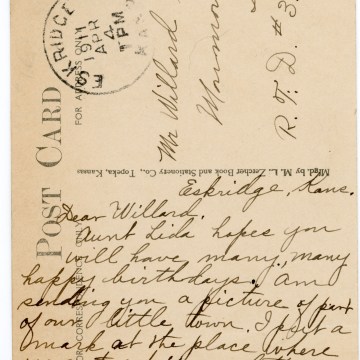 ESKRIDGE
APR
4
7 PM
1911
KAS
POST CARD
FOR ADDRESS ONLY
FOR CORRESPONDENCE ONLY
Mfgd. by M. L. Zercher Book and Stationery Co., Topeka, Kansas
Mr Willard
R. F. D. #3
Eskridge, Kans.
Dear Willard.
Aunt Lida hopes you
will have many, many
happy birthdays. Am
sending you a picture of part
of our little town. I put a
mark at the place where